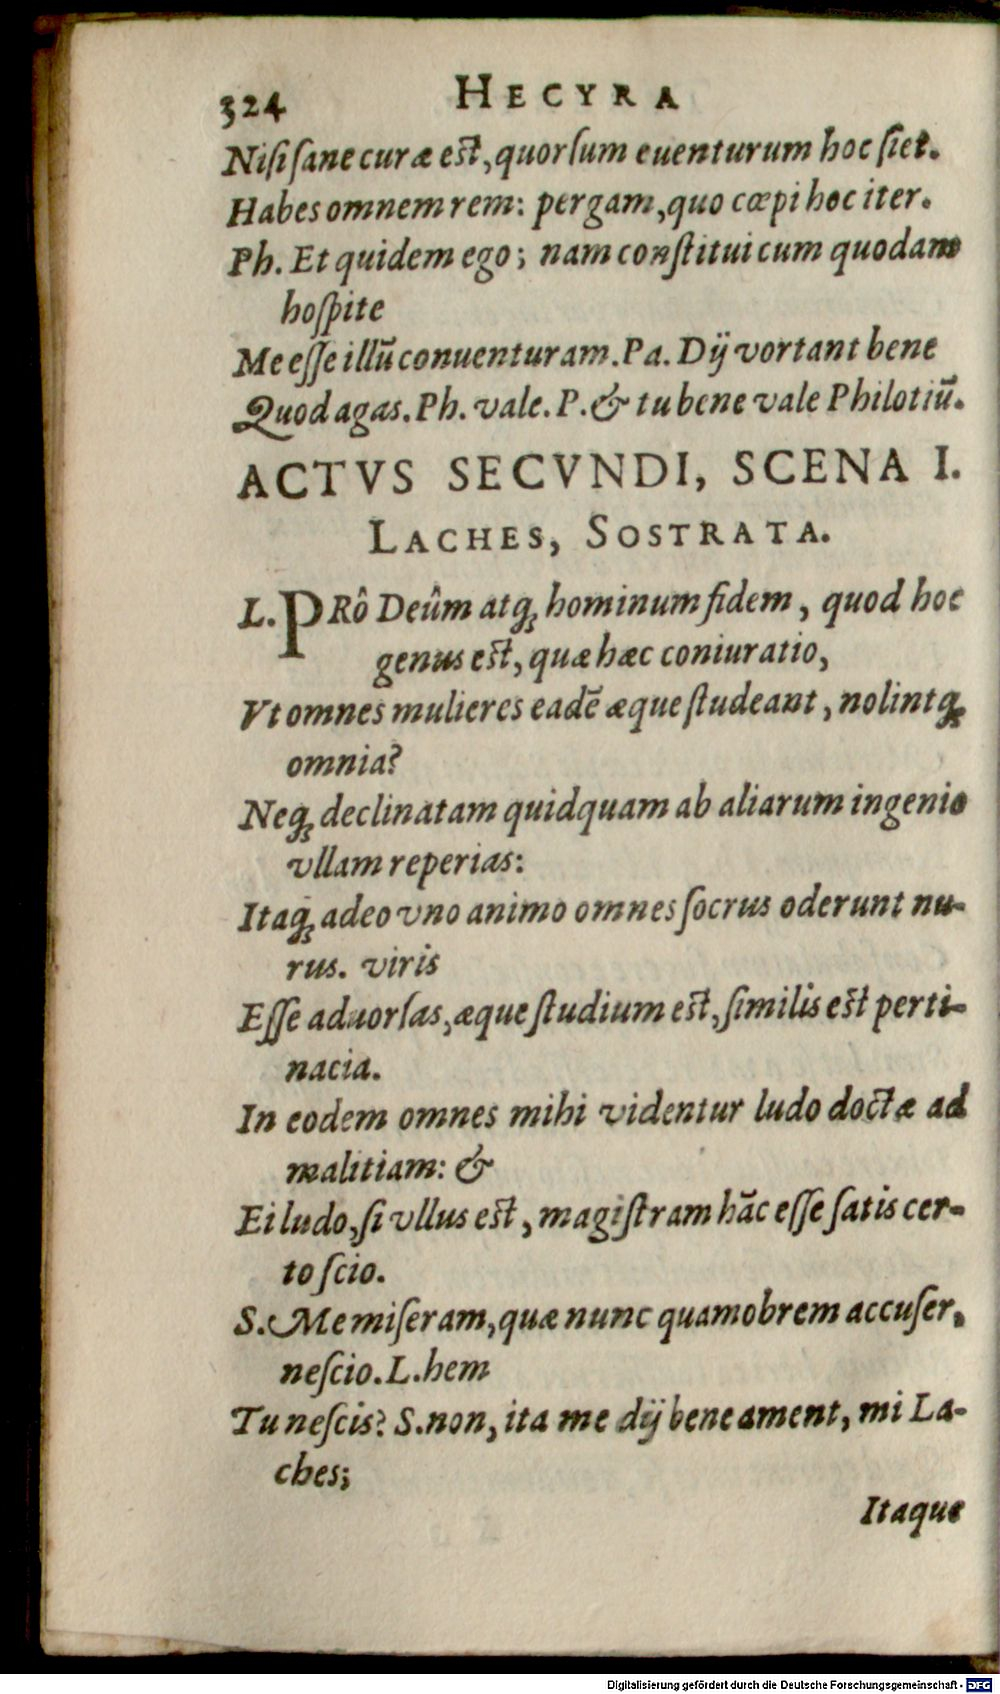 324 HECYRA
Niſi ſane curæ eſt, quorſum euenturum hoc ſiet.
Habes omnem rem: pergam, quo cœpi hoc iter.
Ph. Et quidem ego; nam conſtitui cum quodam
hoſpite
Me eſſe illũ conuenturam. Pa. Dij vortant bene
Quod agas. Ph. vale. P. & tu bene vale Philotiũ.
ACTVS SECVNDI, SCENA I.
LACHES, SOSTRATA.
L. PRô Deûm atq; hominum fidem, quod hoc
genus eſt, quæ hæc coniuratio,
Vt omnes mulieres eadẽ æque ſtudeant, nolintq;
omnia?
Neq; declinatam quidquam ab aliarum ingenio
vllam reperias:
Itaq; adeo vno animo omnes ſocrus oderunt nu-
rus. viris
Eſſe aduorſas, æque ſtudium eſt, ſimilis eſt perti-
nacia.
In eodem omnes mihi videntur ludo doctæ ad
malitiam: &
Ei ludo, ſi vllus eſt, magiſtram hãc eſſe ſatis cer-
to ſcio.
S. Me miſeram, quæ nunc quamobrem accuſer,
neſcio. L. hem
Tu neſcis? S. non, ita me dij bene ament, mi La-
ches;
Itaque
Digitalisierung gefördert durch die Deutsche Forschungsgemeinschaft - DFG